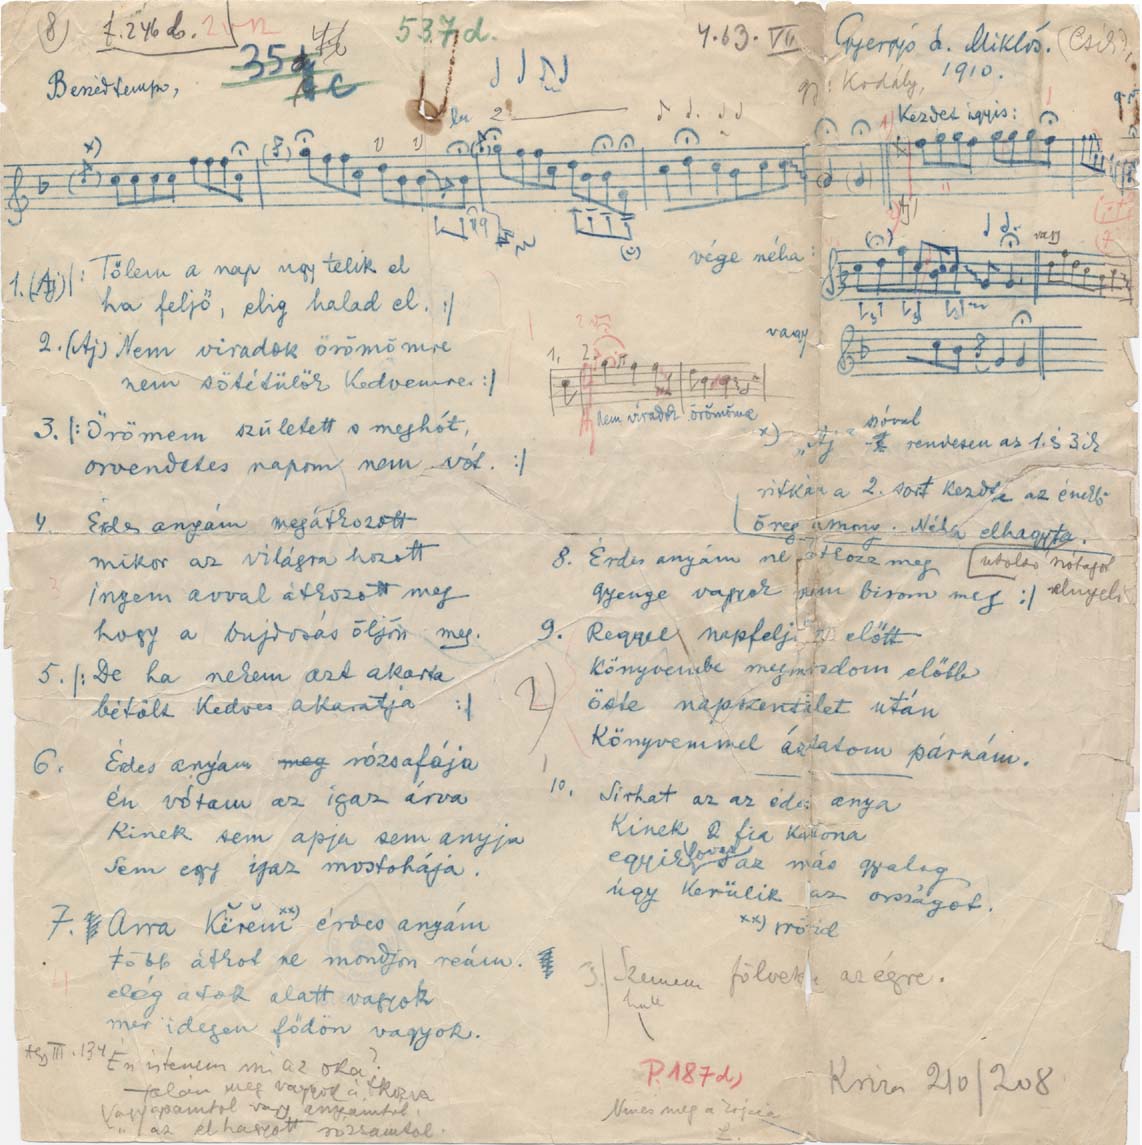 8) 7. 246 d. 2
537 d.
4.63. VII
Gyergyó d. Miklós. (Csík),
35
1910.
Beszédtempo,
gy: Kodály,
Kezdet igyis:
vége néha:
vagy
vagy
1. 2.
Nem viradok örömömre
1. (Aj) |: Tőlem a nap ugy telik el
ha feljő, elig halad el. :|
2. (Aj) Nem viradok örömömre
nem sötétülök Kedvemre. :|
3. |: Örömem született s meghót,
örvendetes napom nem vót. :|
4. Érdes anyám megátkozott
mikor az világra hozott
ingem avval átkozott meg
hogy a bujdosás öljön meg.
5. |: De ha nekem azt akarta
bétölt Kedves akaratja :|
6. Édes anyám meg rózsafája
én vótam az igaz árva
Kinek sem apja sem anyja
Sem egy igaz mostohája.
7. Arra Kérem xx) érdes anyám
több átkot ne mondjon reám.
elég átok alatt vagyok
mer idegen födön vagyok.
III. 134
Én istenem mi az oka?
talán meg vagyok átkozva
Vagy apámtol vagy anyámtol
" " az elhagyott rózsámtol.
x) "Aj" szóval rendesen az 1. s 3ik
ritkán a 2. sort kezdte az éneklő
öreg asszony. Néha elhagyta.
utolsó nótájól elnyeli
8. Érdes anyám ne átkozz meg
gyenge vagyok nem birom meg :|
9. Reggel napfeljötte előtt
Könyvembe megmosdom előbb
öste napszentület után
Könyvemmel áztatom párnám.
10. Sirhat az az édes anya
Kinek 2 fia Katona
egyik lovag az más gyalog
úgy Kerülik az országot.
xx)
3) Szemem fölvetem az égre.
hull
P. 187 d)
210/208
Nincs meg a